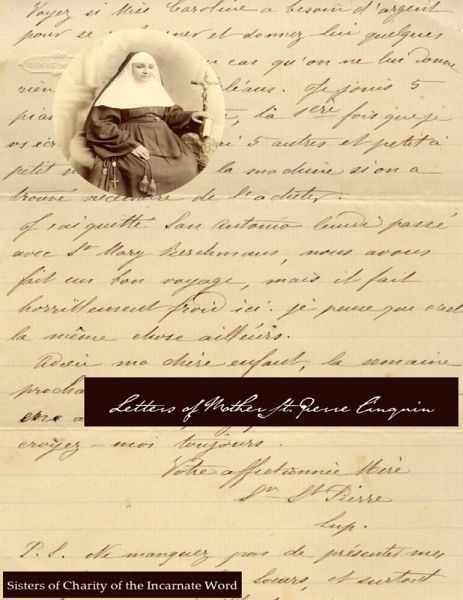 Voyez si Miss Caroline a besoin d'argent
pour se et donnez lui quelques
cas qu'on ne lui donne
rien léans. Je joins 5
piastres la 1ère fois que je
5 autres et petit à
petit la machine si on a
trouvé nécessaire de l'acheter.
J'ai quitté San Antonio lundi passé
avec Sr Mary Berchmans, nous avons
fait un bon voyage, mais il fait
horriblement froid ici. je pense que c'est
la même chose ailleurs.
Adieu ma chère enfant, la semaine
procha
Letters of Mother St. Pierre Cinquin
croyez-moi toujours.
Votre affectionnée Mère
Sr St Pierre
Sup.
P.S. Ne manquez pas de présenter mes
Sisters of Charity of the Incarnate Word
soeurs, et surtout